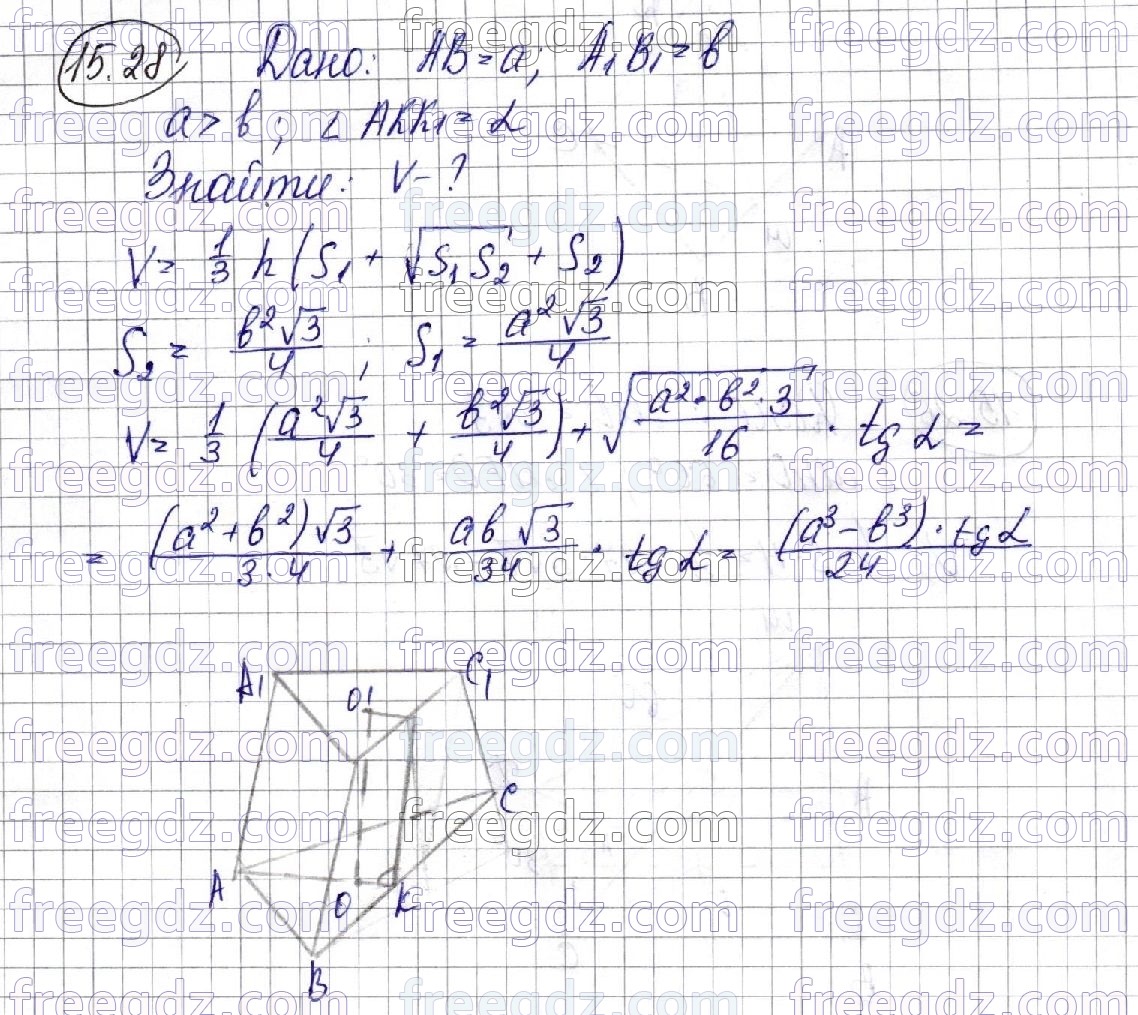 15.28 Дано: AB = a; A₁B₁ = b
a > b; ∠ AKK₁ = α
Знайти: V - ?
V = 1/3 h (S₁ + √(S₁ S₂) + S₂)
S₂ = b²√3/4 ; S₁ = a²√3/4
V = 1/3 (a²√3/4 + b²√3/4) + √(a² · b² · 3/16) · tg α =
= (a² + b²)√3/(3·4) + ab√3/34 · tg α = (a³ - b³) · tg α/24
A₁ C₁
O¹
C
A O K
B
freegdz.com